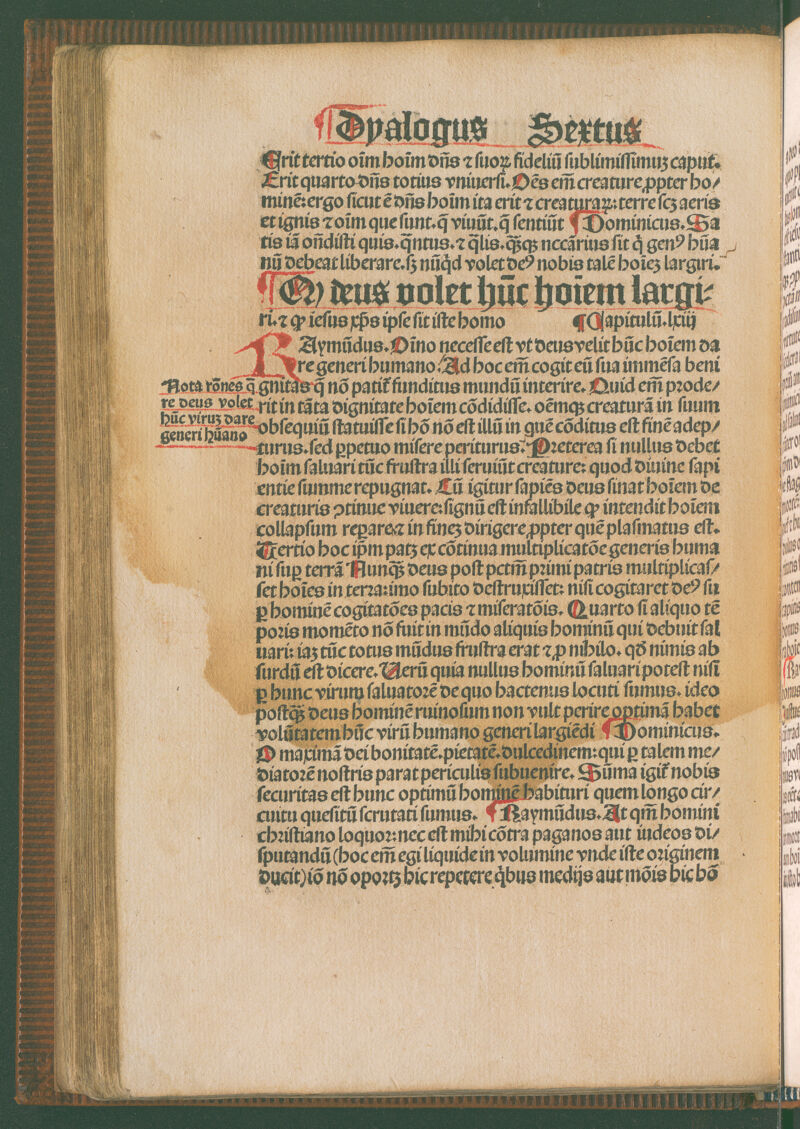 ¶ Dyalogus Sextus
Erit tertio oīm hoīm dn̄s ⁊ suoꝝ fideliū sublimissimuꝫ caput.
Erit quarto dn̄s totius vniuersi. Oēs em̄ creature ꝓpter ho/
minē: ergo sicut ē dn̄s hoīm ita erit ⁊ creaturaꝝ: terre scꝫ aeris
et ignis ⁊ oīm que sunt. q̄ viuūt. q̄ sentiūt ¶ Dominicus. Sa
tis iā on̄disti quis. q̄ntus. ⁊ q̄lis. q̄ꝫqꝫ nccārius sit q̇ genꝰ hūa
nū debeat liberare. sꝫ nūq̇d volet deꝰ nobis talē hoīeꝫ largiri.
¶ Qꝫ deus volet hūc hoīem largi-
ri. ⁊ ꝙ iesus xp̄s ipse sit iste homo ¶ Capitulū. lxiij
RAymūdus. Oīno necesse est vt deus velit hūc hoīem da
re generi humano. Ad hoc em̄ cogit eū sua immēsa beni
gnitas q̄ nō patit᷑ funditus mundū interire. Quid em̄ prode/
rit in tāta dignitate hoīem cōdidisse. oēmqꝫ creaturā in suum
obsequiū statuisse si hō nō est illū in quē cōditus est finē adep/
turus. sed ꝑpetuo misere periturus. Preterea si nullus debet
hoīm saluari tūc frustra illi seruiūt creature: quod diuine sapi
entie summe repugnat. Cū igitur sapiēs deus sinat hoīem de
creaturis ꝯtinue viuere: signū est infallibile ꝙ intendit hoīem
collapsum reparare ⁊ in fineꝫ dirigere ꝓpter quē plasmatus est.
Tertio hoc ip̄m patꝫ ex cōtinua multiplicatōe generis huma
ni suꝑ terrā Nunqꝫ deus post pctm̄ primi patris multiplicas/
set hoīes in terra: imo subito destruxisset: nisi cogitaret deꝰ su
ꝑ hominē cogitatōes pacis ⁊ miseratōis. Quarto si aliquo tē
poris momēto nō fuit in mūdo aliquis hominū qui debuit sal
uari: iaꝫ tūc totus mūdus frustra erat ⁊ ꝓ nihilo. qd̄ nimis ab
surdū est dicere. Uerū quia nullus hominū saluari potest nisi
ꝑ hunc virum saluatorē de quo hactenus locuti sumus. ideo
postqꝫ deus hominē ruinosum non vult perire optimā habet
volūtatem hūc virū humano generi largiēdi ¶ Dominicus.
O maximā dei bonitatē. pietatē. dulcedinem: qui ꝑ talem me/
diatorē nostris parat periculis subuenire. Sūma igit᷑ nobis
securitas est hunc optimū hominē habituri quem longo cir/
cuitu quesitū scrutati sumus. ¶ Raymūdus. At qm̄ homini
christiano loquor: nec est mihi cōtra paganos aut iudeos di/
sputandū (hoc em̄ egi liquide in volumine vnde iste originem
ducit) iō nō oportꝫ hic repetere q̇bus medijs aut mōis hic hō
Nota rōnes q̄
re deus volet
hūc viruꝫ dare
generi hūano